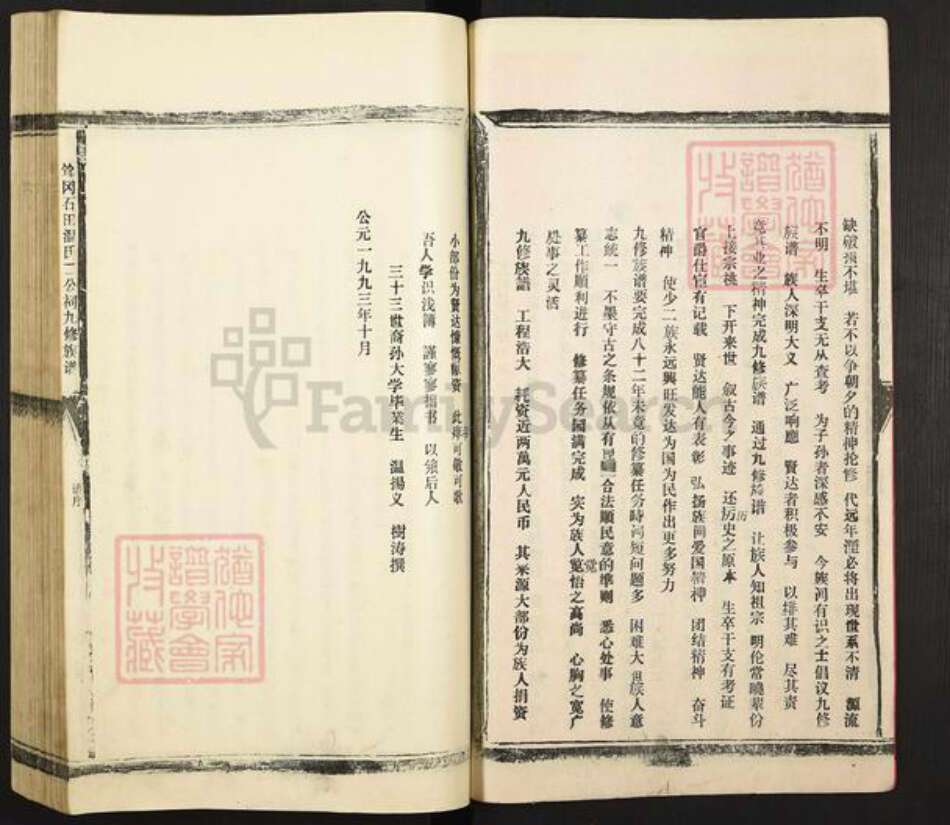 缺毁损不堪　若不以争朝夕的精神抢修　代远年湮必将出现世系不清　源流
不明　生卒干支无从查考　为子孙者深感不安　今族间有识之士倡议九修
族谱　族人深明大义　广泛响應　贤达者积极参与　以排其难　尽其责
竟其业之精神完成九修族谱　通过九修族谱　让族人知祖宗　明伦常曉辈份
上接宗祧　下开来世　叙古今之事迹　还历史之原本　生卒干支有考证
历
官爵仕宦有记载　贤达能人有表彰　弘扬族间爱国精神　团结精神　奋斗
精神　使少二族永远興旺发达为国为民作出更多努力
九修族谱要完成八十二年未竟的修纂任务時间短问题多　困难大　族人意
志统一　不墨守古之条规依从有　合法順民意的準则　悉心处事　使修
纂工作顺利进行　修纂任务圆满完成　实为族人宽怡之高尚　心胸之宽广
觉
处事之灵活
九修族譜　工程浩大　耗资近两萬元人民币　其来源大部份为族人捐资
小部份为贤达慷慨解资　此　可敬可歌
吾人学识浅簿　謹寥寥拙书　以飨后人
三十三世裔孙大学毕業生　温揚义　樹涛撰
公元一九九三年十月
冈石田温氏十三公祠九修族谱
谱序
FamilySearch